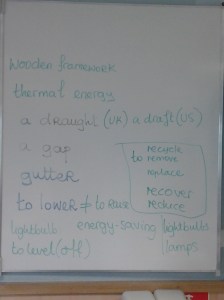 wooden framework
thermal energy
a draught (UK) a draft (US)
a gap
gutter
to lower ≠ to raise
lightbulb
to level (off)
recycle
to remove
replace
recover
reduce
energy-saving lightbulbs
lamps